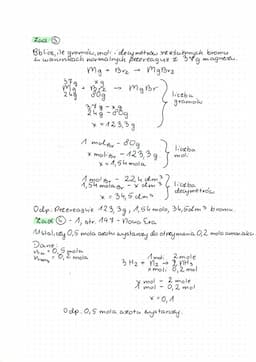 Zad ③
Oblicz, ile gramów, moli i decymetrów sześciennych bromu
w warunkach normalnych przereaguje z 37g magnezu.
Mg + Br₂ → MgBr₂
37g xg
Mg + Br₂ → MgBr
24g 80g
liczba
gramów
37g - xg
24g - 80g
x = 123,3g
1 mol Br - 80g
x mol Br - 123,3g
x = 1,54 mola
liczba
moli
1 mol Br - 22,4 dm³
1,54 mola Br - x dm³
x = 34,5 dm³
liczba
decymetrów
Odp. Przereaguje 123,3g, 1,54 mola, 34,5 dm³ bromu.
Zad ④ - 1, str. 147 - Nowa Era
Ustal, czy 0,5 mola azotu wystarczy do otrzymania 0,2 mola amoniaku.
Dane:
= 0,5 mola
= 0,2 mola
1 mol 2 mole
3H₂ + N₂ → 2NH₃
x moli 0,2 mol
1 mol - 2 mole
x mol - 0,2 mol
x = 0,1
Odp. 0,5 mola azotu wystarczy.